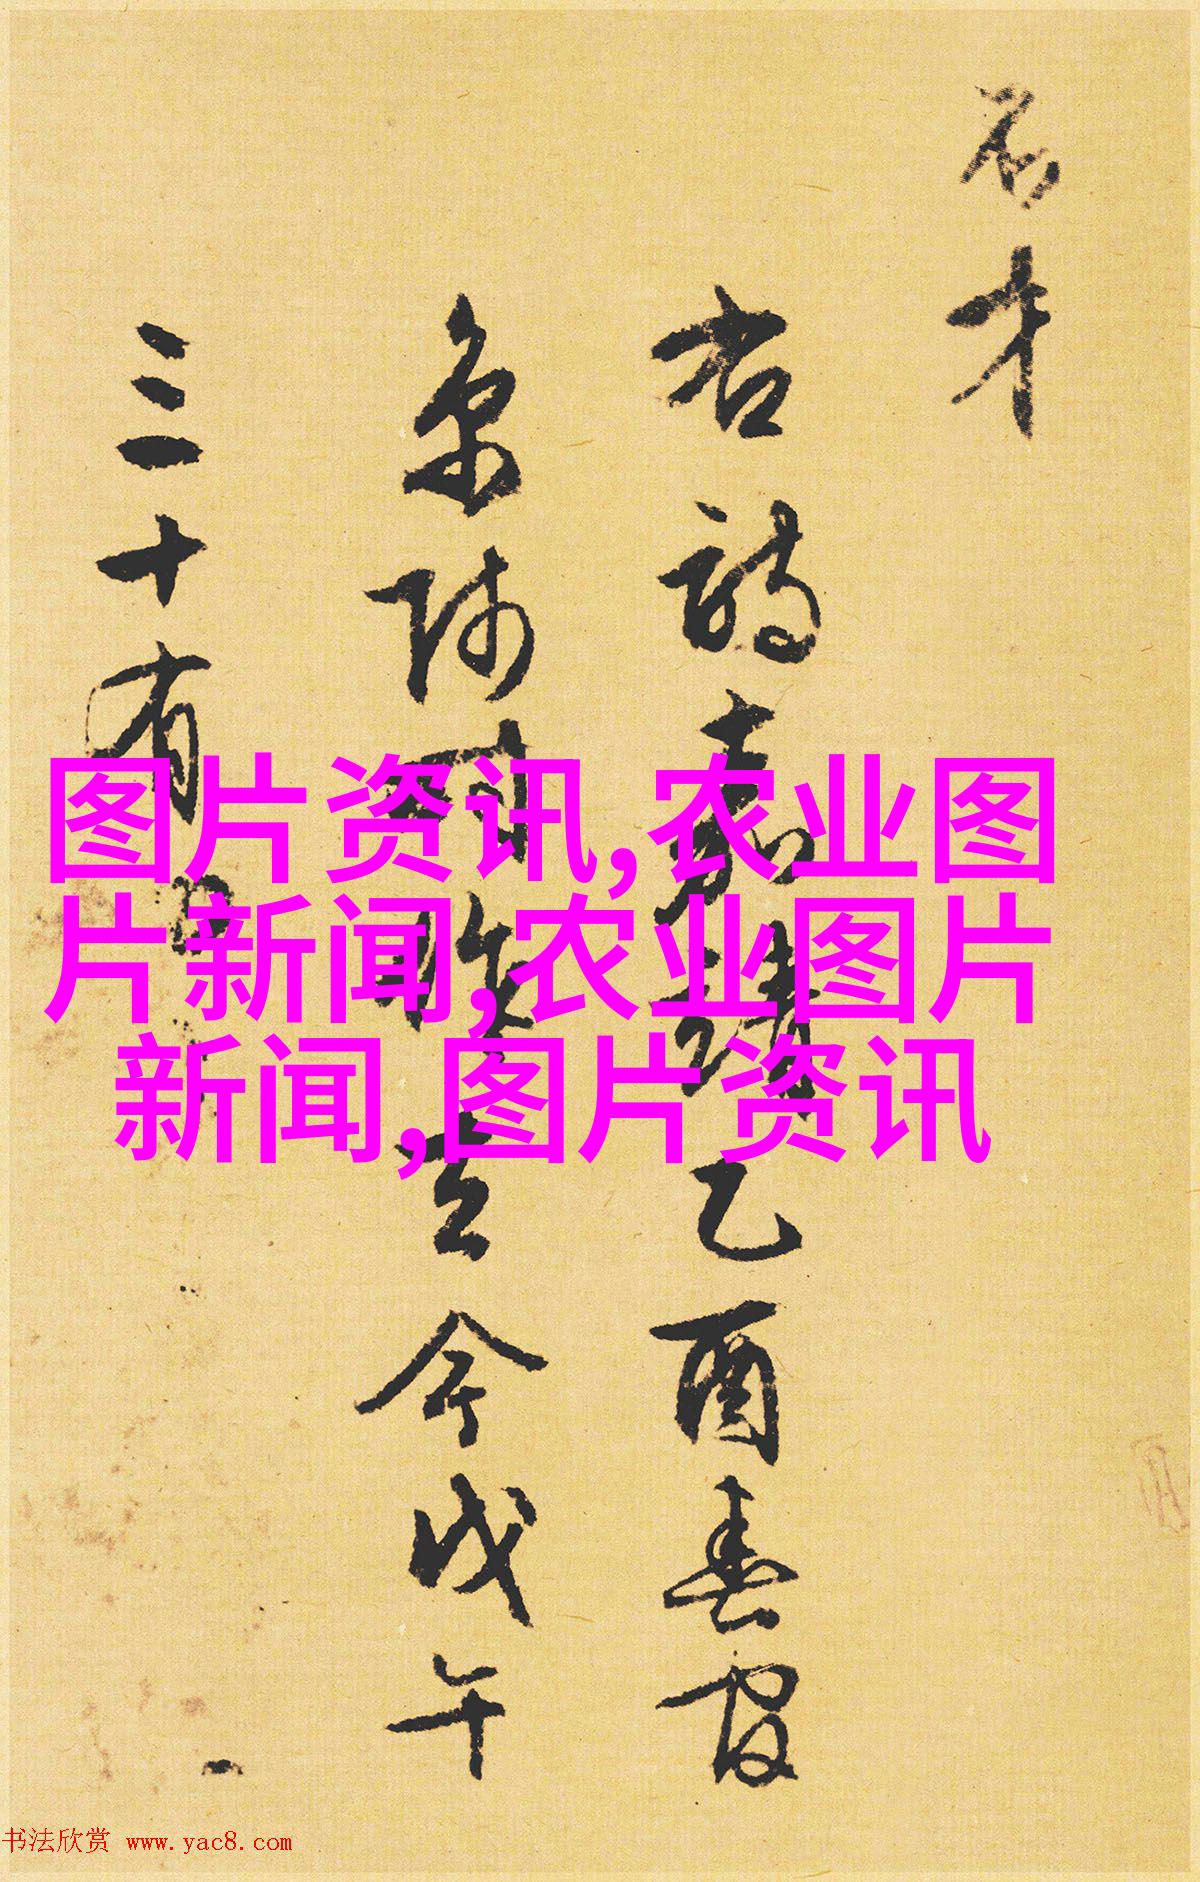 才
右嘉靖乙酉春
京師今戊午
三十有
图片资讯,农业图
片新闻,农业图片
新闻,图片资讯
书法欣赏 www.yac8.com